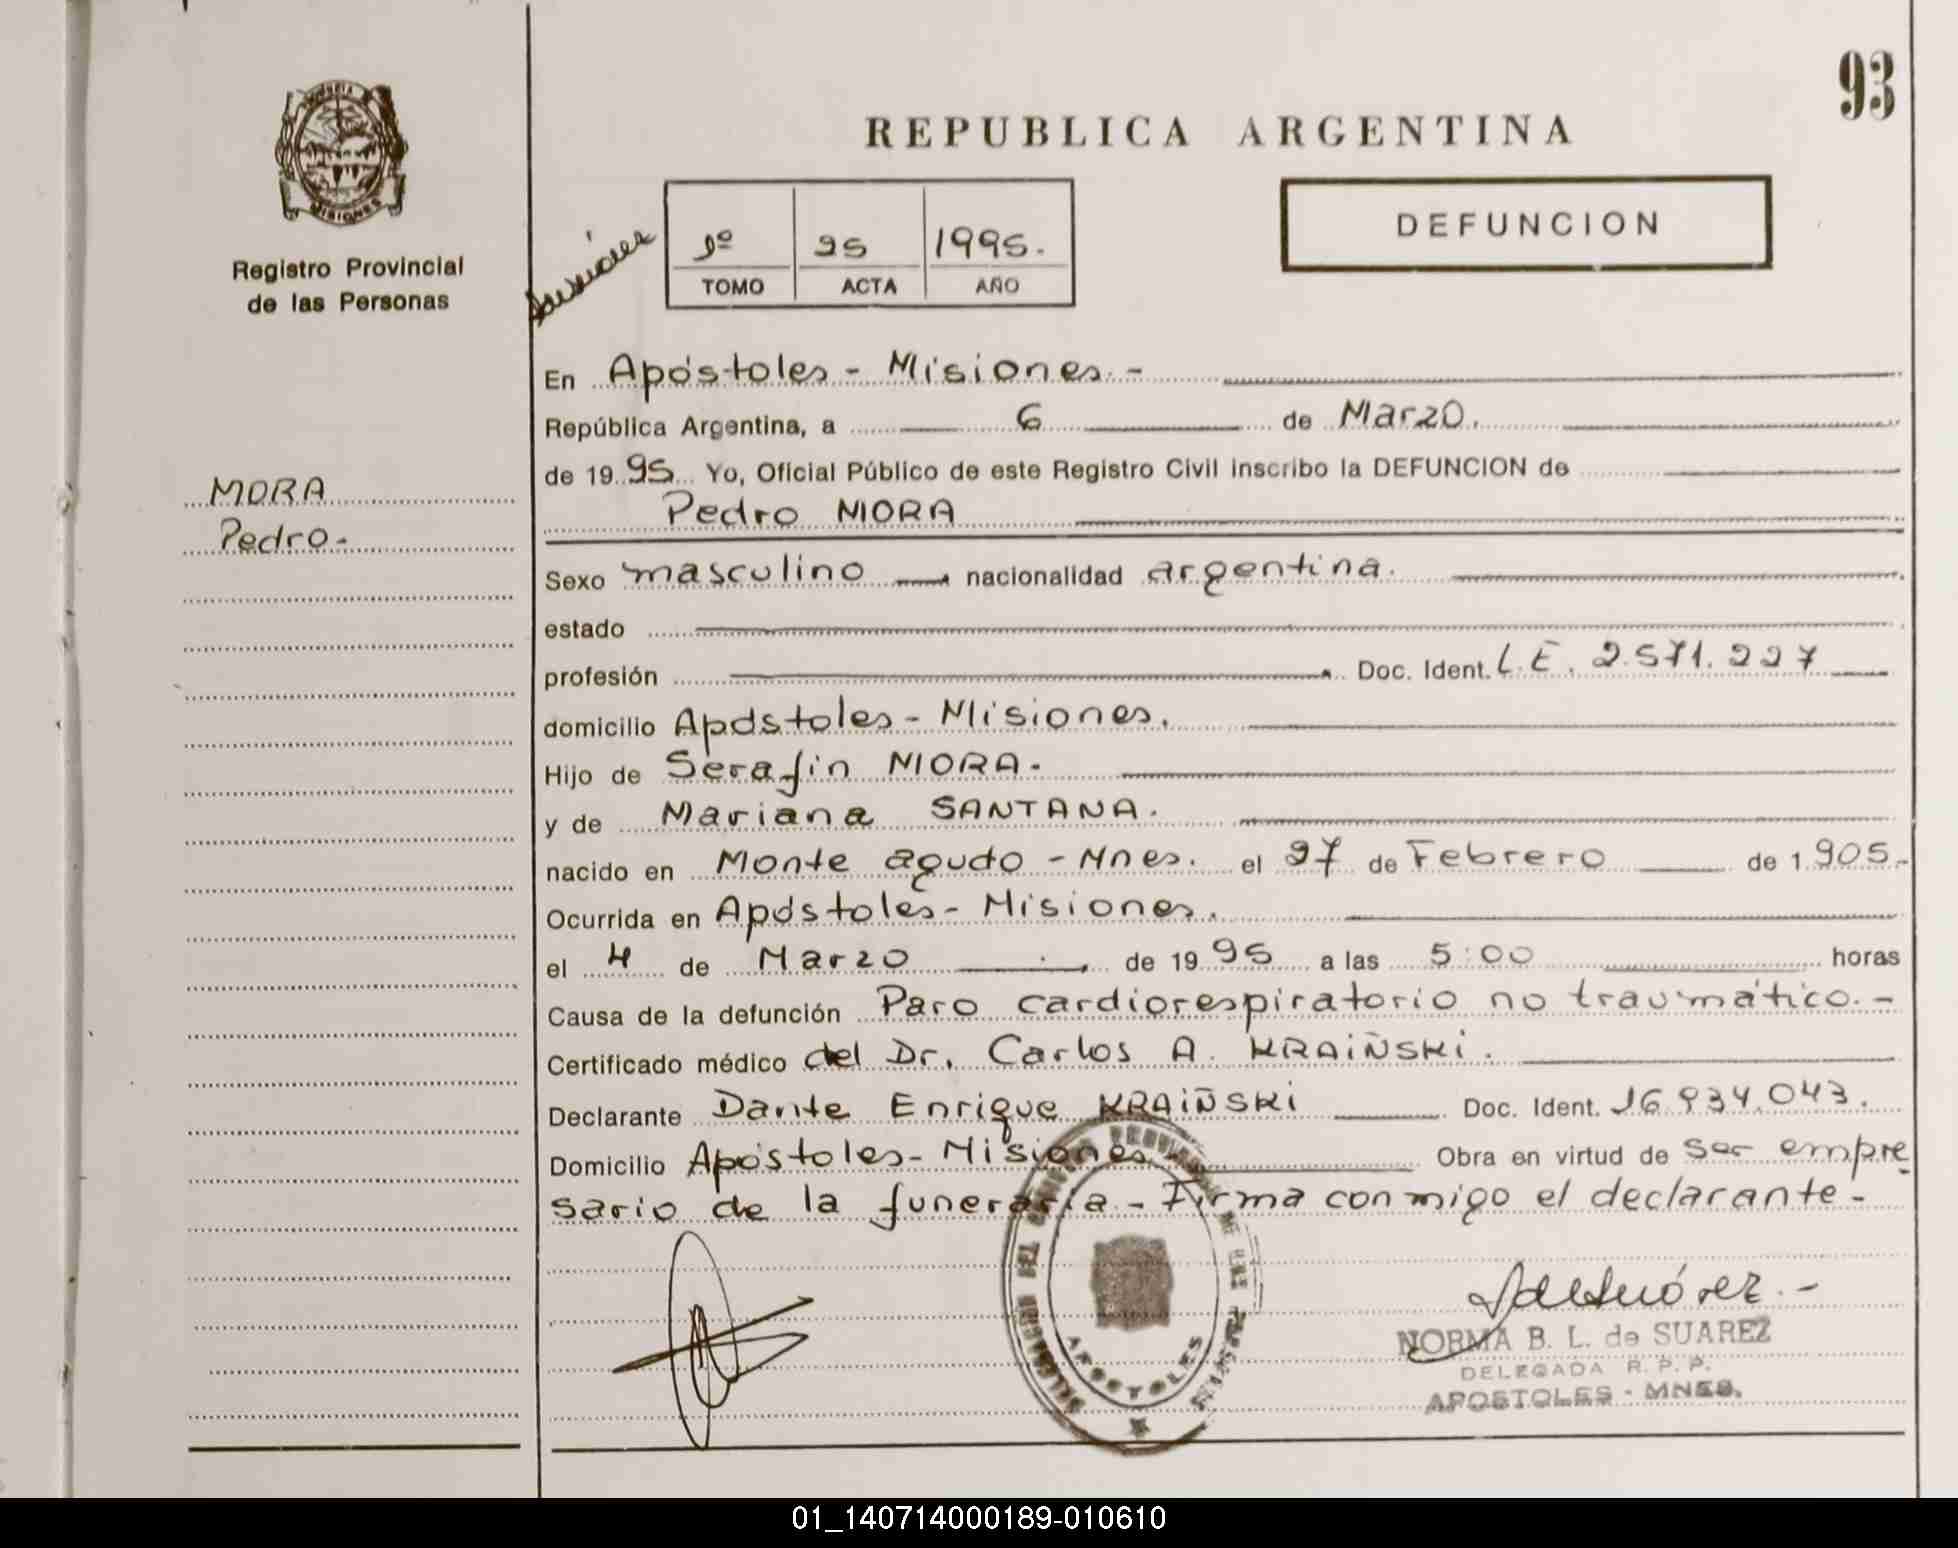 93
PROVINCIA
MISIONES
Registro Provincial
de las Personas
MORA
Pedro.
REPUBLICA ARGENTINA
1º 95 1995.
TOMO ACTA AÑO
DEFUNCION
En Apóstoles - Misiones. -
República Argentina, a 6 de Marzo.
de 19 95 Yo, Oficial Público de este Registro Civil inscribo la DEFUNCION de
Pedro MORA
Sexo masculino nacionalidad argentina.
estado
profesión Doc. Ident. L.E. 2.571.227
domicilio Apóstoles - Misiones.
Hijo de Serafin MORA.
y de Mariana SANTANA.
nacido en Monte agudo - Mnes. el 27 de Febrero de 1.905.
Ocurrida en Apóstoles - Misiones.
el 4 de Marzo de 19 95 a las 5:00 horas
Causa de la defunción Paro cardiorespiratorio no traumático. -
Certificado médico del Dr. Carlos A. KRAIÑSKI.
Declarante Dante Enrique KRAIÑSKI Doc. Ident. 16.934.043.
Domicilio Apóstoles - Misiones Obra en virtud de ser empre
sario de la funeraria - Firma conmigo el declarante -
APOSTOLES
NORMA B. L. de SUAREZ
DELEGADA R. P. P.
APOSTOLES - MNES.
01_140714000189-010610